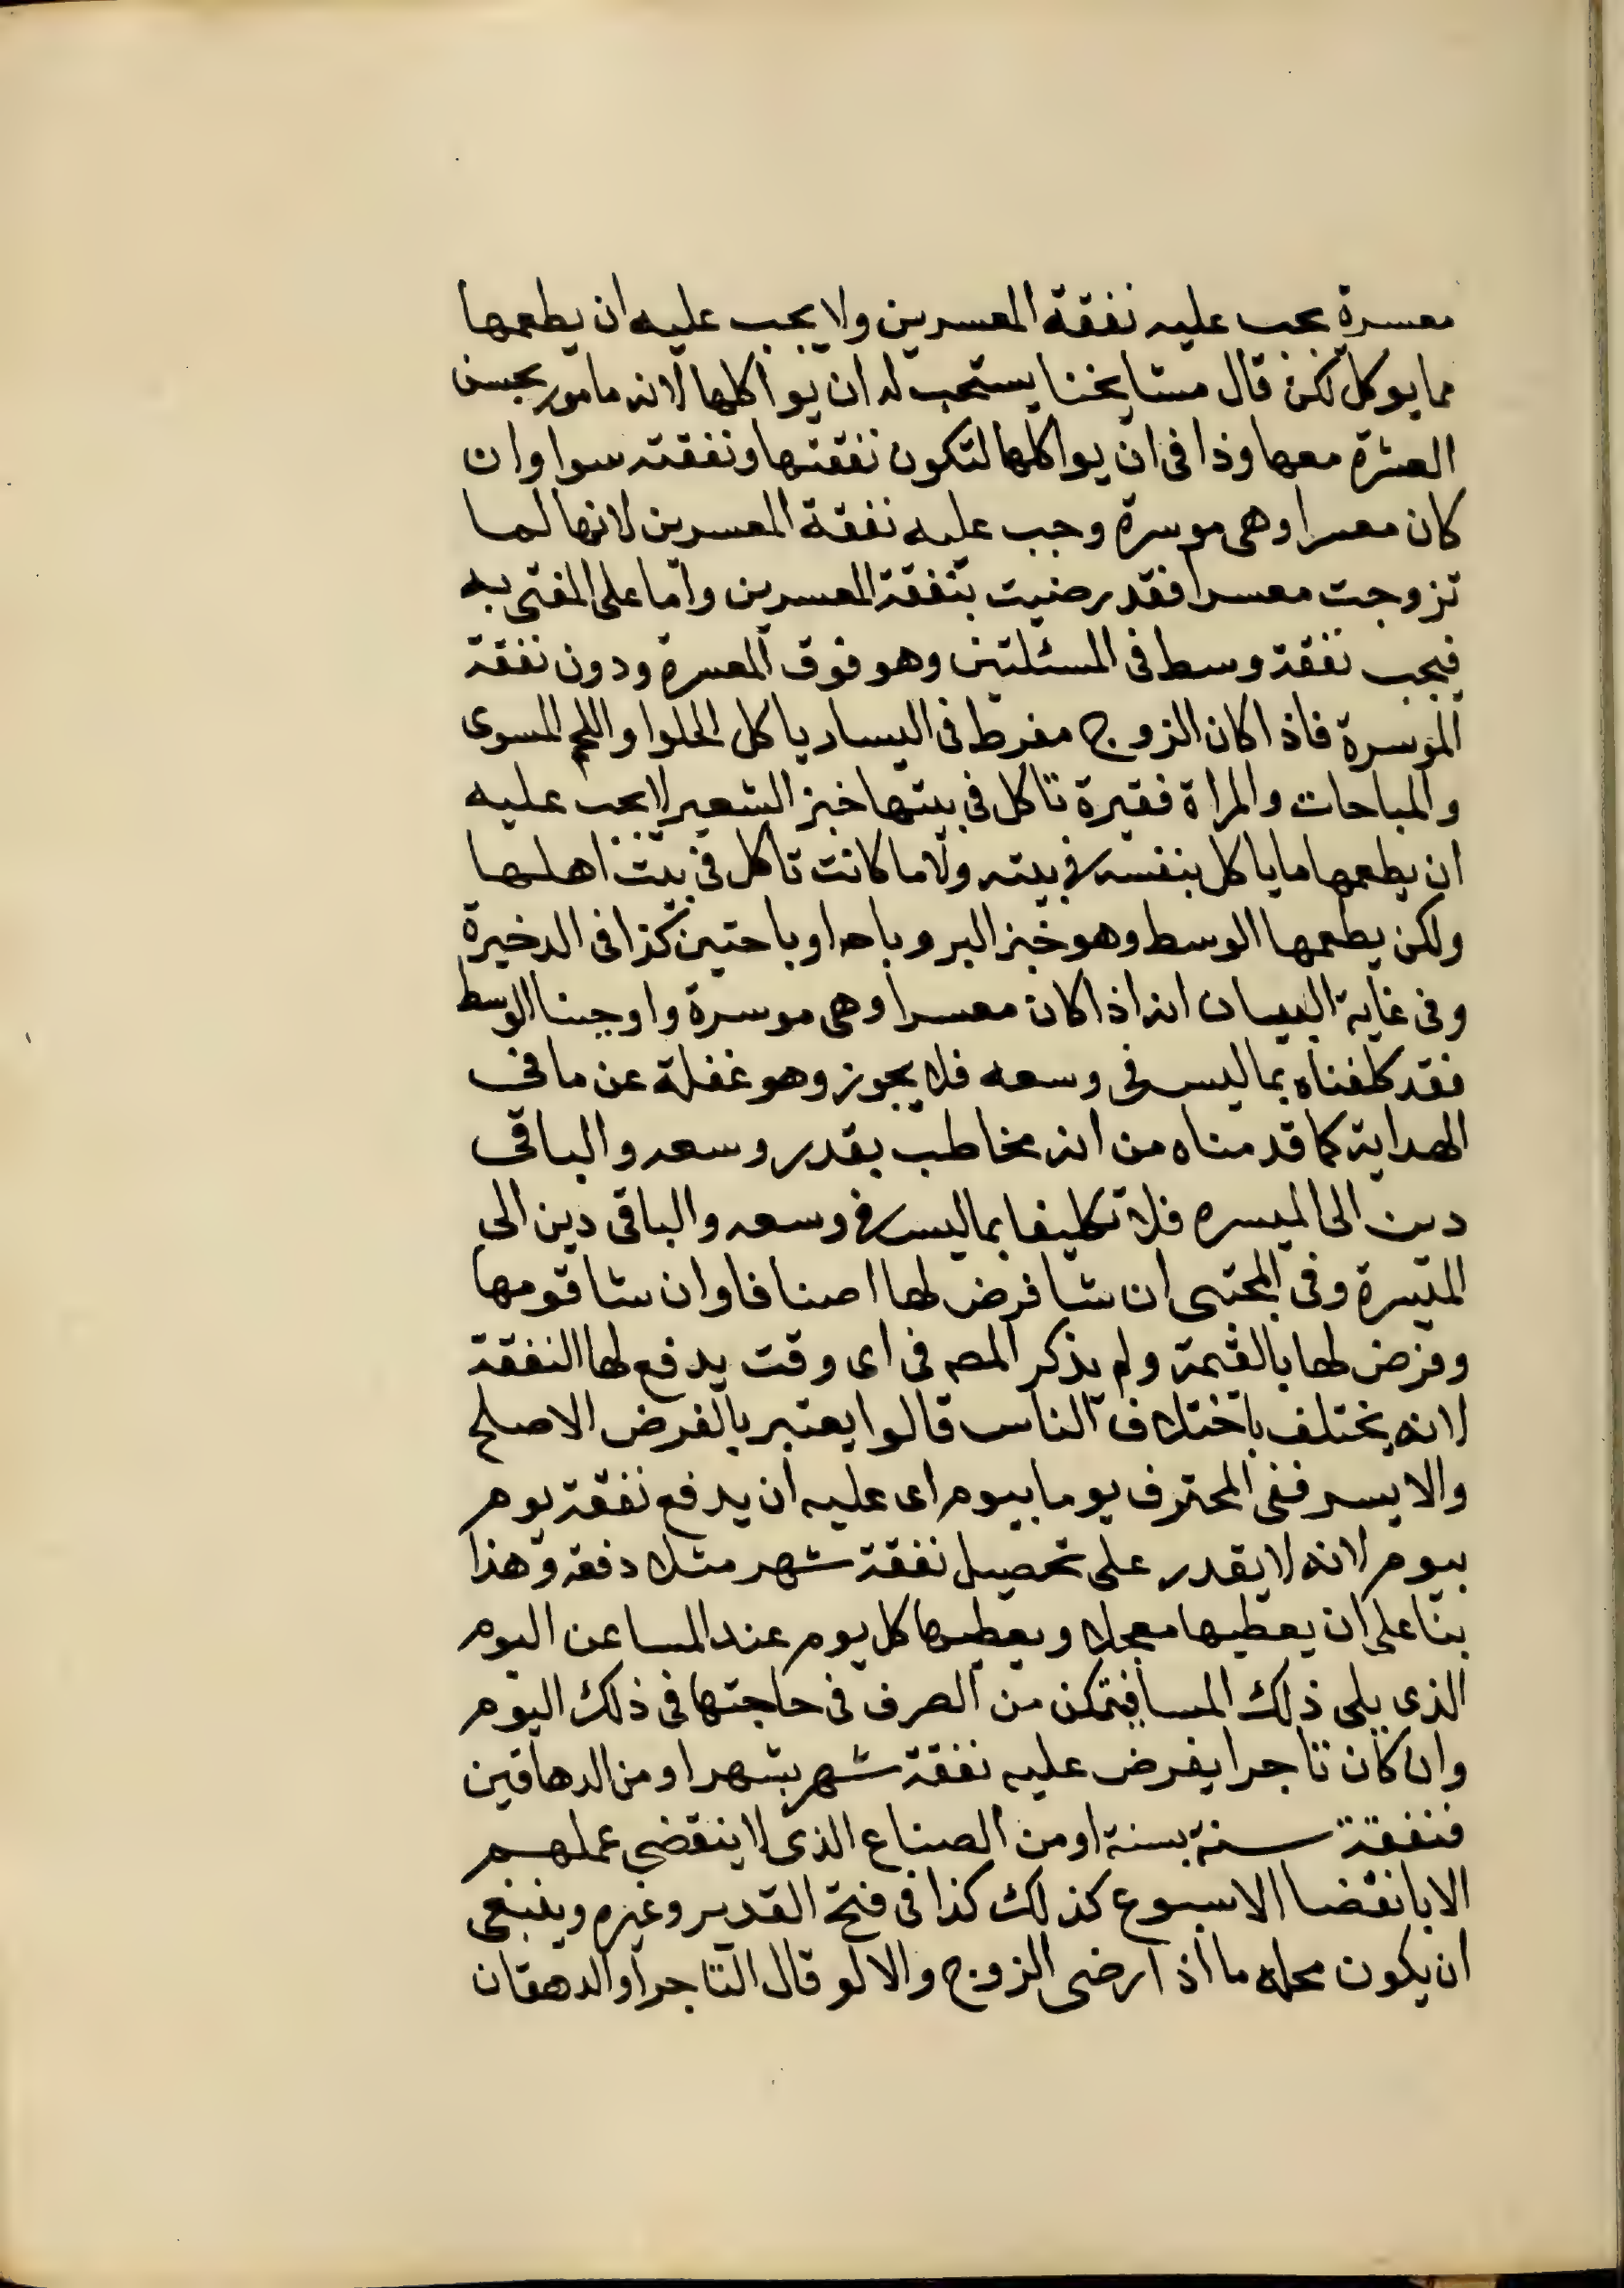 معسرة يجب عليه نفقة المعسرين ولا يجب عليه ان يطعمها
مما يوكل لكن قال مشايخنا يستحب له ان يواكلها لانه مامور بحسن
العشرة معها وذا فى ان يواكلها لتكون نفقتها ونفقته سوا وان
كان معسرا وهى موسرة وجب عليه نفقة المعسرين لانها لما
تزوجت معسرا فقد رضيت بنفقة المعسرين واما على المفتى به
فيجب نفقة وسط فى المسئلتين وهو فوق المعسرة ودون نفقة
الموسرة فاذا كان الزوج مفرط فى اليسار ياكل الحلوا واللحم المسوى
والمباحات والمراة فقيرة تاكل فى بيتها خبز الشعير لا يجب عليه
ان يطعمها ما ياكل بنفسه فى بيته ولا ما كانت تاكل فى بيت اهلها
ولكن يطعمها الوسط وهو خبز البر وباحه او باحتين كذا فى الدخيرة
وفى غاية البيان انه اذا كان معسرا وهى موسرة واوجبنا الوسط
فقد كلفناه بما ليس فى وسعه فلا يجوز وهو غفلة عن ما فى
الهداية كما قدمناه من انه مخاطب بقدر وسعه والباقى
دين الى الميسره فلا تكليفا بما ليس فى وسعه والباقى دين الى
الميسرة وفى المجتبى ان شا فرض لها اصنافا وان شا قومها
وفرض لها بالقيمة ولم يذكر المصه فى اى وقت يدفع لها النفقة
لانه يختلف باختلاف الناس قالوا يعتبر بالفرض الاصلح
والايسر ففى المحترف يوما بيوم اى عليه ان يدفع نفقة يوم
بيوم لانه لا يقدر على تحصيل نفقة شهر مثلا دفعة وهذا
بنا على ان يعطيها معجلا ويعطيها كل يوم عند المسا عن اليوم
الذى يلى ذلك المسا فيتمكن من الصرف فى حاجتها فى ذلك اليوم
وان كان تاجرا يفرض عليه نفقة شهر بشهر او من الدهاقين
فنفقة سنة بسنة او من الصناع الذى لا ينقضى عملهم
الا بانقضا الاسبوع كذلك كذا فى فتح القدير وغيره وينبغى
ان يكون محله ما اذا رضى الزوج والا لو قال التاجر او الدهقان